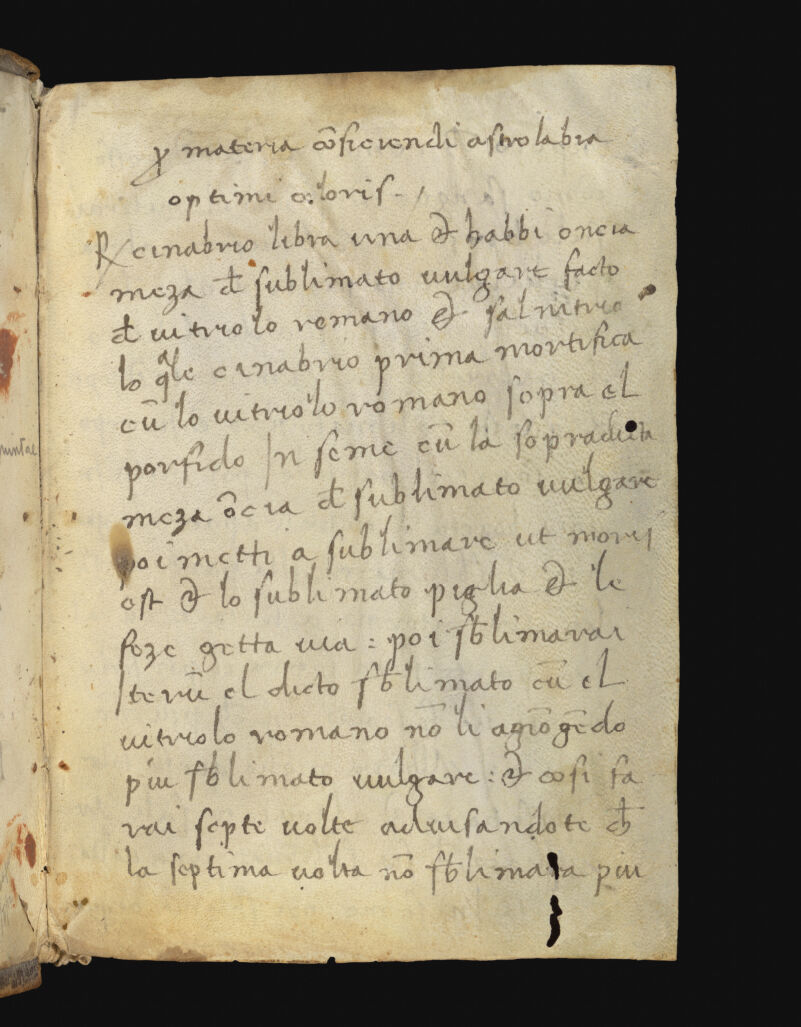 ꝓ materia cōficiendi astrolabia
optimi coloris. /
℞ cinabrio libra una & habbi oncia
meza đ sublimato vulgare facto
đ vitriolo romano & salnitrio
lo qͣle cinabrio prima mortifica
cū lo vitriolo romano sopra el
porfido In seme cū la sopradicta
meza ōcia đ sublimato vulgare
poi metti a sublimare ut moris
est & lo sublimato piglia & le
feze getta via : poi sƀlimarai
Iterū el dicto sƀlimato cū el
vitriolo romano nō li agiōgēdo
piu sƀlimato vulgare : & cosi fa
rai septe volte advisandote cħ
la septima volta nō sƀlimara piu
puintae